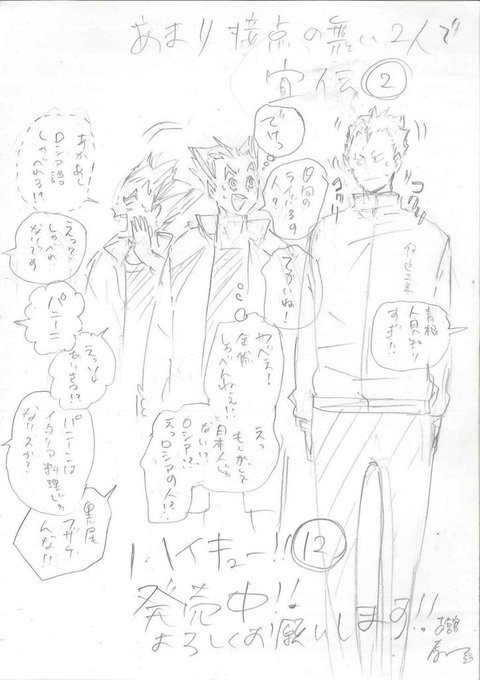 あまり接点の無い2人で
宣伝②
でけっ
日向の
ライバルの
人?
でかいね!
コクコク
伊達工業
青根
人見知り
すぎ!!
やっべえ!
全然
しゃべんねぇ!!
えっ
もしかして
日本人じゃ
ない!?
えっロシアの人!?
あかあし
ロシア語
しゃべれる!?
えっ?
しゃべれ
ないです
パニーニ
えっ
あいさつ!?
パニーニは
イタリア料理じゃ
ないスか?
黒尾
フザケ
んな!!
ハイキュー!!⑫
発売中!!
よろしくお願いします!!
古舘
春一